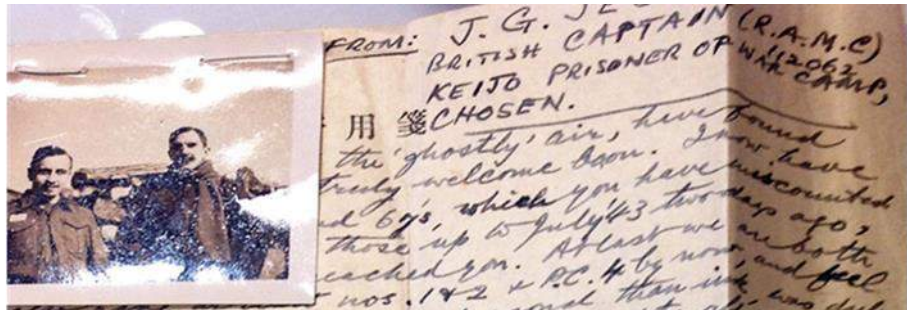 FROM: J. G. JE
BRITISH CAPTAIN (R.A.M.C)
112062
KEIJO PRISONER OF WAR CAMP,
CHOSEN.
用箋
the 'ghostly' air, have found
truly welcome boon. I now have
d 69's, which you have miscounted
those up to July '43 two days ago,
eached you. At last we are both
nos. 1 & 2 & P.C. 4 by now, and feel
than ink was